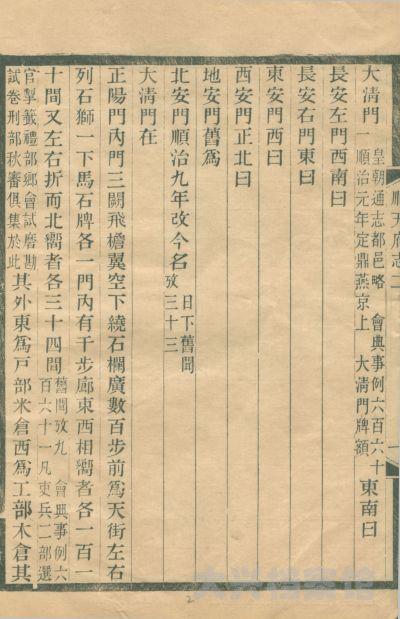 順天府志二
一
大清門一 皇朝通志都邑略 會典事例六百六十
順治元年定鼎燕京上 大清門牌額 東南曰
長安左門西南曰
長安右門東曰
東安門西曰
西安門正北曰
地安門舊爲
北安門順治九年改今名 日下舊聞
攷三十三
大淸門在
正陽門內門三闕飛檐翼空下繞石欄廣數百步前爲天街左右
列石獅一下馬石牌各一門內有千步廊東西相嚮者各一百一
十間又左右折而北嚮者各三十四間 舊聞攷九 會典事例六
百六十一凡吏兵二部選
官掣籤禮部鄉會試磨勘
試卷刑部秋審俱集於此 其外東爲戶部米倉西爲工部木倉其
大兴档案馆
2